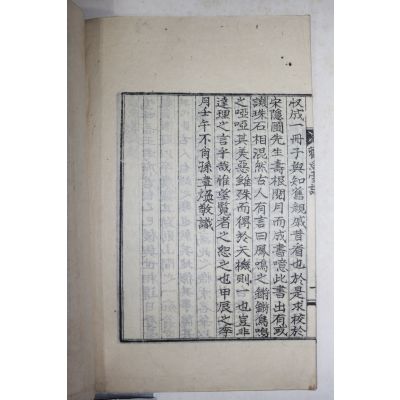 收成一冊子與知舊親戚昔看也於是求校於
宋隱圃先生壽根閱月而成書噫此書出有或
譏珠石相混然古人有言曰鳳鳴之鏘鏘鳥鳴
之啞啞其美惡雖殊而得於天機則一也豈非
達理之言乎哉惟望覽者之恕之也甲辰之季
月壬午不肖孫晝煜敬識